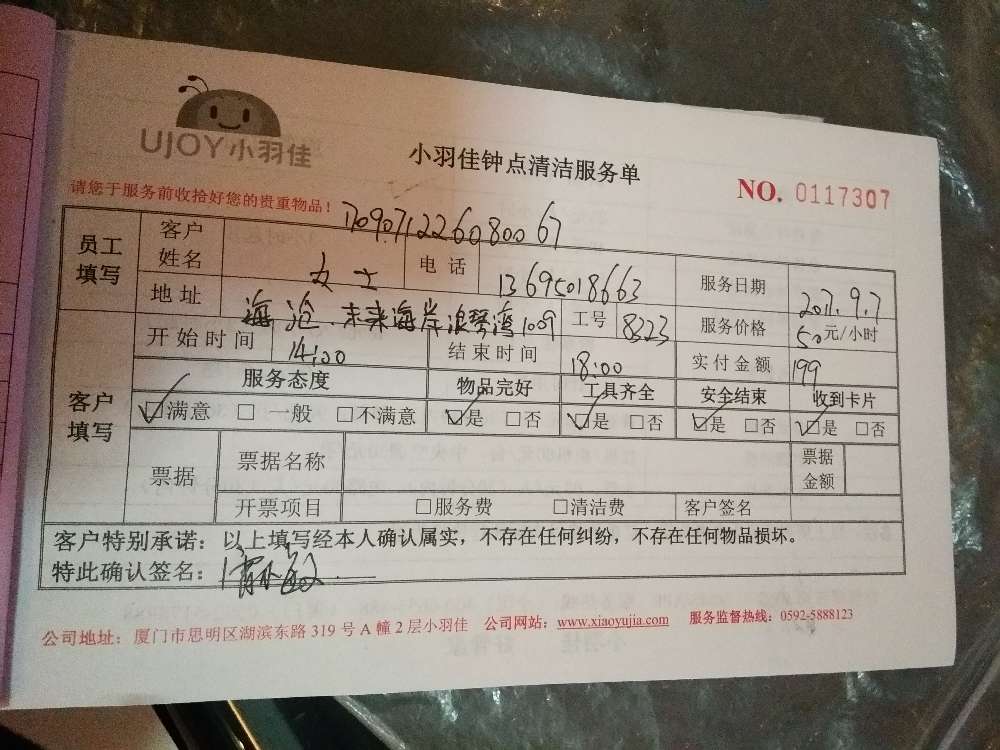 UJOY小羽佳
小羽佳钟点清洁服务单
NO. 0117307
请您于服务前收拾好您的贵重物品！
17090712260800 67
员工填写 客户姓名 女士 电话 13695018663 服务日期 2017.9.7
地址 海沧.未来海岸浪琴湾1009 工号 8223 服务价格 50元/小时
客户填写 开始时间 14:00 结束时间 18:00 实付金额 199
服务态度 物品完好 工具齐全 安全结束 收到卡片
☑满意 □一般 □不满意 ☑是 □否 ☑是 □否 ☑是 □否 ☑是 □否
票据 票据名称 票据金额
开票项目 □服务费 □清洁费 客户签名
客户特别承诺：以上填写经本人确认属实，不存在任何纠纷，不存在任何物品损坏。
特此确认签名：
公司地址：厦门市思明区湖滨东路319号A幢2层小羽佳 公司网站：www.xiaoyujia.com 服务监督热线：0592-5888123